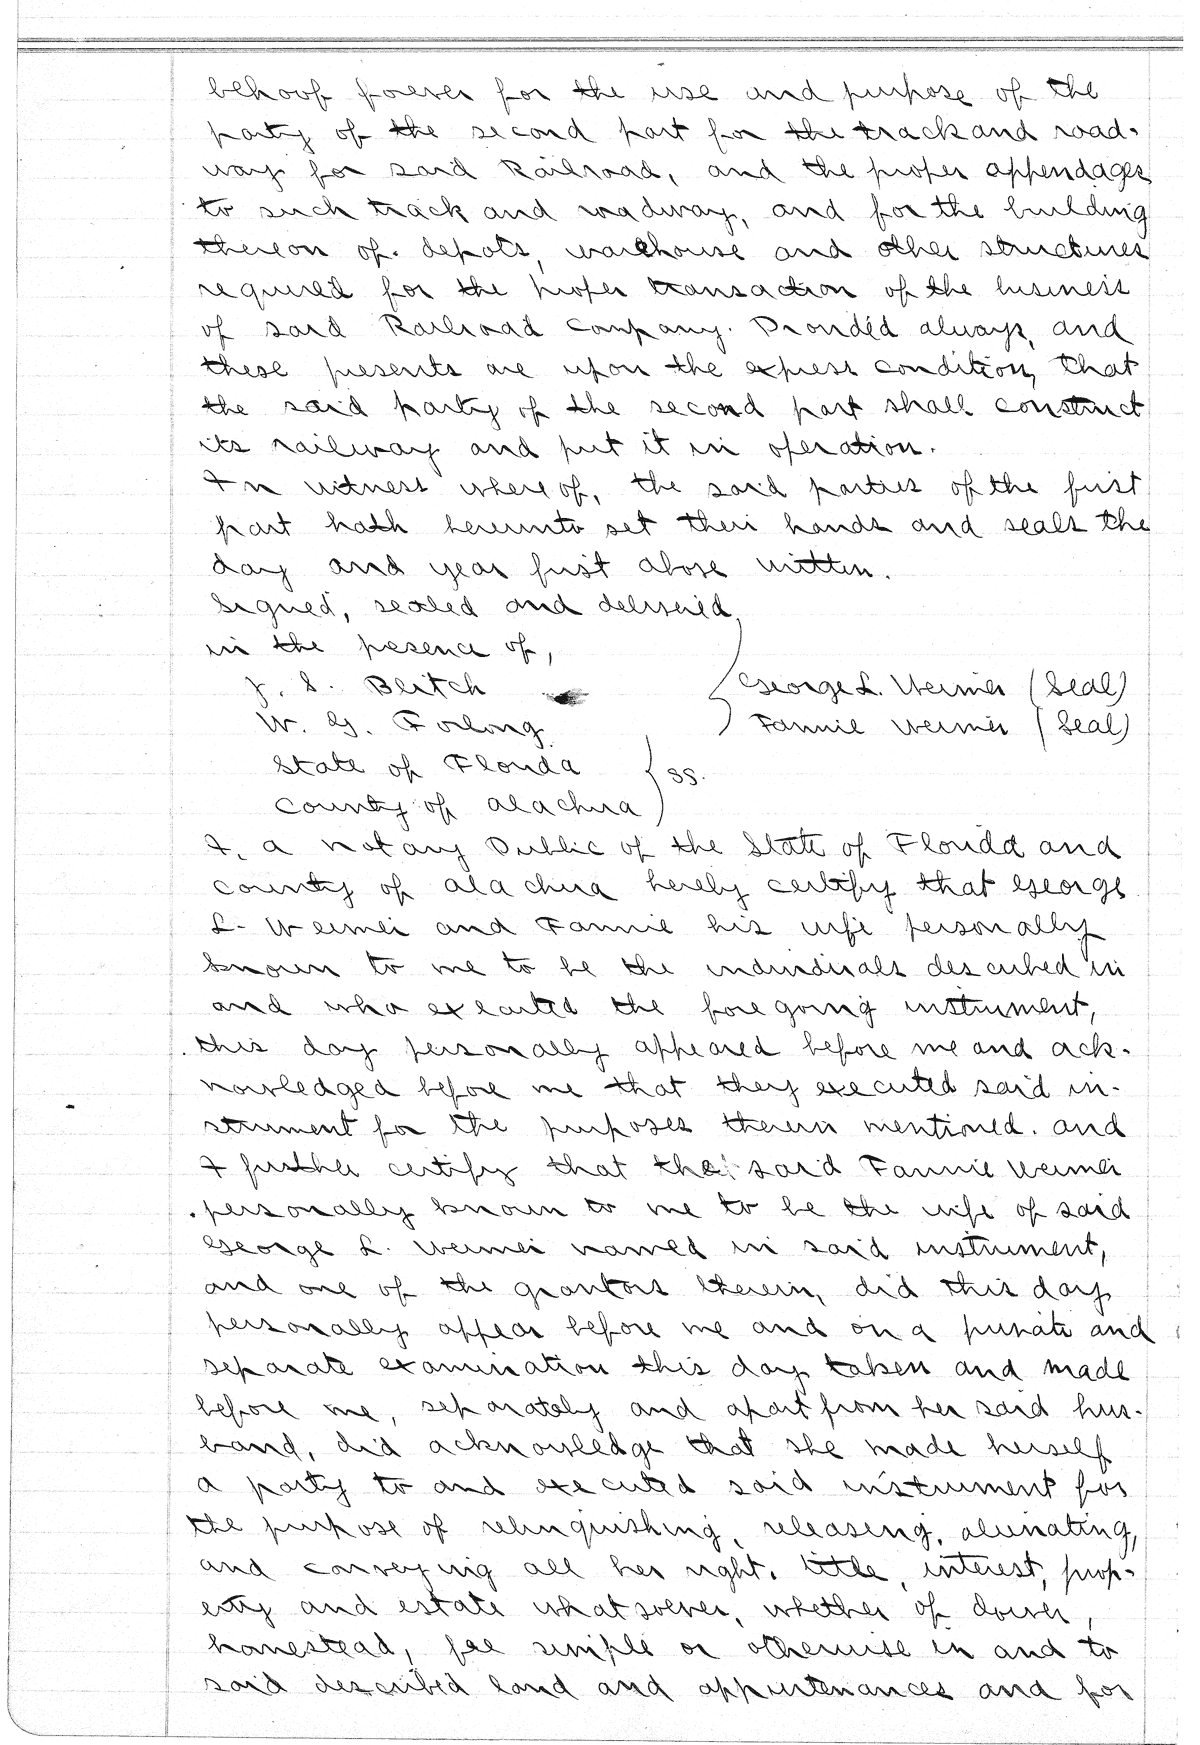 behoof forever for the use and purpose of the
party of the second part for the track and road-
way for said Railroad, and the proper appendages
to such track and roadway, and for the building
thereon of depots, warehouse and other structures
required for the proper transaction of the business
of said Railroad Company. Provided always, and
these presents are upon the express condition, that
the said party of the second part shall construct
its railway and put it in operation.
In witness whereof, the said parties of the first
part hath hereunto set their hands and seals the
day and year first above written.
Signed, sealed and delivered
in the presence of,
J. S. Blitch George L. Weimer (Seal)
W. G. Forlong Fannie Weimer (Seal)
State of Florida
County of Alachua } SS.
I, a notary Public of the State of Florida and
county of Alachua hereby certify that George
L. Weimer and Fannie his wife personally
known to me to be the individuals described in
and who executed the foregoing instrument,
this day personally appeared before me and ack-
nowledged before me that they executed said in-
strument for the purposes therein mentioned. and
I further certify that the said Fannie Weimer
personally known to me to be the wife of said
George L. Weimer named in said instrument,
and one of the grantors therein, did this day
personally appear before me and on a private and
separate examination this day taken and made
before me, separately and apart from her said hus-
band, did acknowledge that she made herself
a party to and executed said instrument for
the purpose of relinquishing, releasing, alienating,
and conveying all her right, title, interest, prop-
erty and estate whatsoever, whether of dower,
homestead, fee simple or otherwise in and to
said described land and appurtenances and for